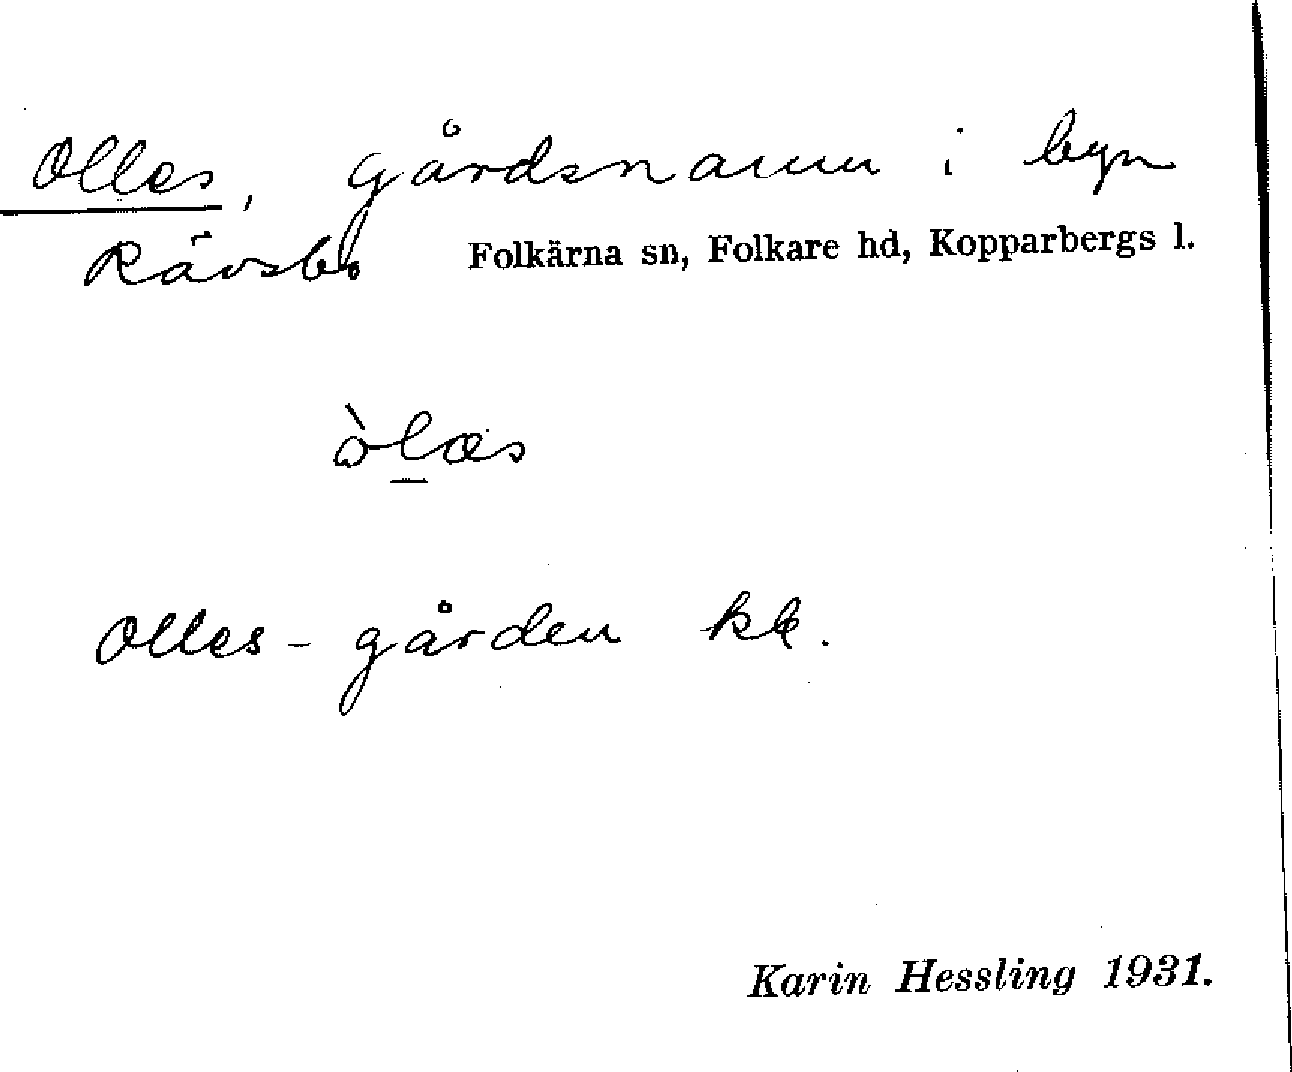 Olles, gårdsnamn i byn
Rävsbo Folkärna sn, Folkare hd, Kopparbergs l.
òlæs
Olles-gården kk.
Karin Hessling 1931.